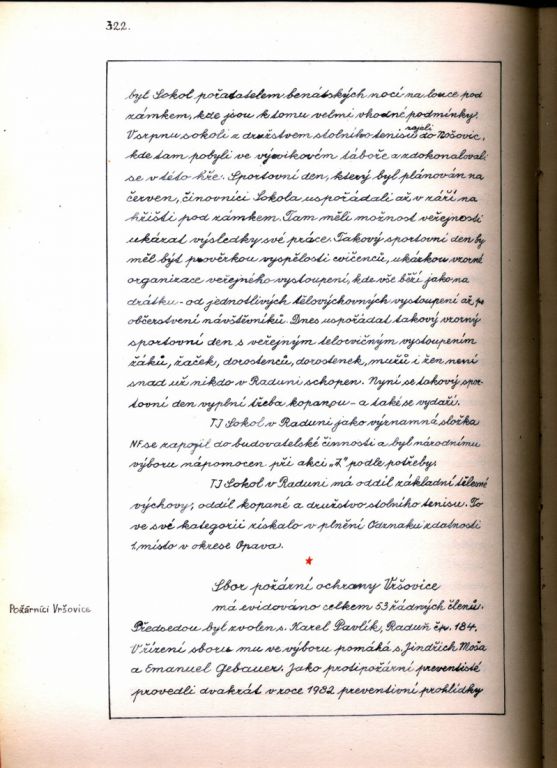 322.
byl Sokol pořadatelem benátských nocí na louce pod
zámkem, kde jsou k tomu velmi vhodné podmínky.
V srpnu sokoli z družstvem stolního tenisu zajeli do Nošovic,
kde tam pobyli ve výcvikovém táboře a zdokonalovali
se v této hře. Sportovní den, který byl plánován na
červen, činovníci Sokola uspořádali až v září na
hřišti pod zámkem. Tam měli možnost veřejnosti
ukázat výsledky své práce. Takový sportovní den by
měl být prověrkou vyspělosti cvičenců, ukázkou vzorné
organizace veřejného vystoupení, kde vše běží jako na
drátku - od jednotlivých tělovýchovných vystoupení až po
občerstvení návštěvníků. Dnes uspořádat takový vzorný
sportovní den s veřejným tělocvičným vystoupením
žáků, žaček, dorostenců, dorostenek, mužů i žen není
snad už nikdo v Raduni schopen. Nyní se takový spor-
tovní den vyplní třeba kopanou - a také se vydaří.
TJ Sokol v Raduni jako významná složka
NF se zapojil do budovatelské činnosti a byl národnímu
výboru nápomocen při akci „Z" podle potřeby.
TJ Sokol v Raduni má oddíl základní tělesné
výchovy, oddíl kopané a družstvo stolního tenisu. To
ve své kategorii získalo v plnění Odznaku zdatnosti
1. místo v okrese Opava.
Sbor požární ochrany Vršovice
Požárníci Vršovice
má evidováno celkem 53 řádných členů.
Předsedou byl zvolen s. Karel Pavlík, Raduň čp. 184.
V řízení sboru mu ve výboru pomáhá s. Jindřich Moša
a Emanuel Gebauer. Jako protipožární preventisté
provedli dvakrát v roce 1982 preventivní prohlídky